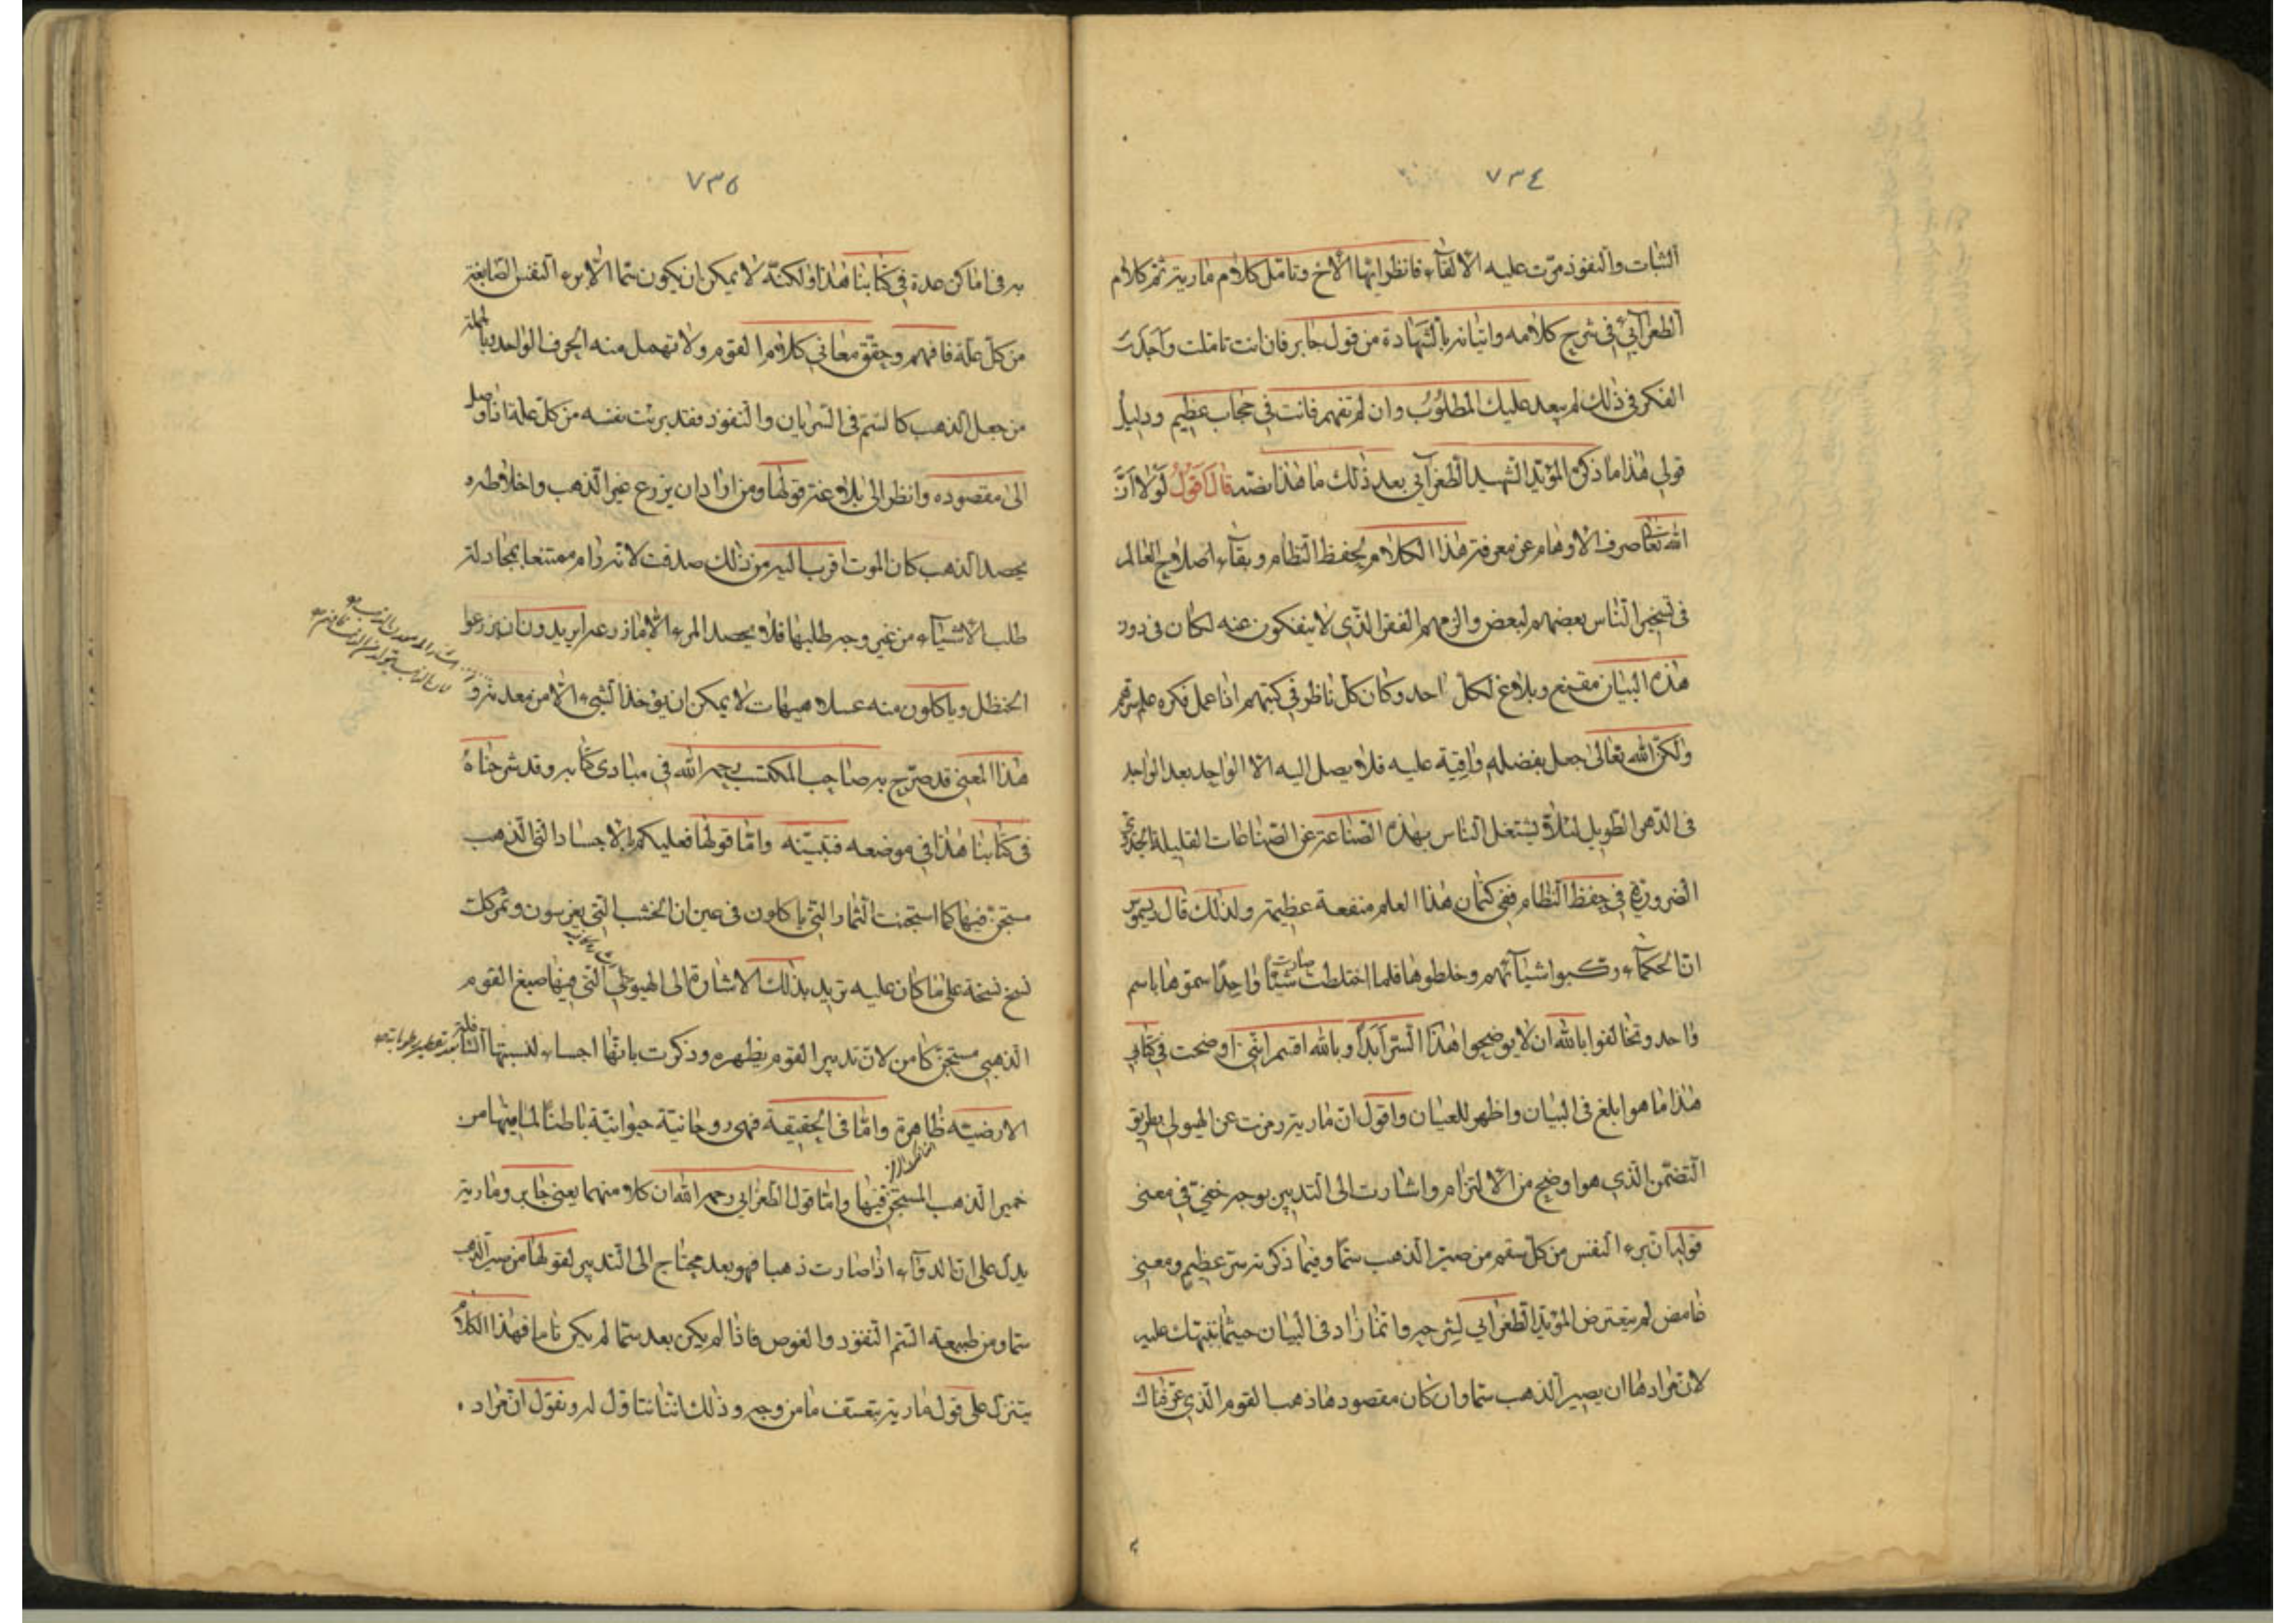 ٧٣٤
الثبات والنفوذ مرّت عليه الالقآء فانظر ايها الاخ وتامّل كلام مارية ثم كلام
الطغرآئي في شرح كلامه واتيانه بالشهادة من قول جابر فان انت تاملت واجدت
الفكر في ذلك لم يبعد عليك المطلوب وان لم تفهم فانت في حجاب عظيم ودليل
قولي هذا ما ذكره المؤيد الشهيد الطغرآئي بعد ذلك ما هذا نصّه قال اقول لولا انّ
الله تعالى صرف الاوهام عن معرفة هذا الكلام لحفظ النظام وبقآء اصلاح العالم
في تسخير الناس بعضهم لبعض والزمهم الفقر الذي لا ينفكون عنه لكان في دون
هذه البيان مقنع وبلاغ لكل احد وكان كل ناظر في كتبهم اذا عمل فكره علم سرهم
ولكن الله تعالى جعل بفضله واقية عليه فلا يصل اليه الا الواحد بعد الواحد
في الدهر الطويل لئلا يشتغل الناس بهذه الصناعة عن الصناعات القليلة الجدوى
الضرورية في حفظ النظام ففي كتمان هذا العلم منفعة عظيمة ولذلك قال ديموس
ان الحكمآء ركبوا اشيآئهم وخلطوها فلما اختلطت صارت شيئا واحدا سموها باسم
واحد وتحالفوا بالله ان لا يوضحوا هذا السرّ ابدا وبالله اقسم انني اوضحت في كتابي
هذا ما هو ابلغ في البيان واظهر للعيان واقول ان مارية رمزت عن الهيولي بطريق
التضمن الذي هو اوضح من الالتزام واشارت الى التدبير بوجه خفي في معنى
قولها ان تبرء النفس من كل سقم من صير الذهب سمّا وفيما ذكرته سرّ عظيم ومعنى
غامض لم يتعرض المؤيد الطغرآئي لشرحه وانما زاد في البيان حيثما نبهتك عليه
لان مرادها ان يصير الذهب سمّا وان كان مقصودها ذهب القوم الذي عرّفناك
٧٣٥
به في اماكن عدة في كتابنا هذا ولكنه لا يمكن ان يكون سما الا لابرء النفس الصابغة
من كل علة فافهم وحقق معاني كلام القوم ولا تهمل منه الحرف الواحد وبالجملة
من جعل الذهب كالسّم في السريان والنفوذ فقد برئت نفسه من كل علة اذا وصل
الى مقصوده وانظر الى بلاغة قولها ومن اراد ان يزرع غير الذهب واخلاطه
يحصد الذهب كان الموت اقرب اليه من ذلك صدقت لانه رام ممتنعا بمجادلة
طلب الاشيآء من غير وجه طلبها فلا يحصد المرء الا ما زرعه ايريدون ان يزرعوا
الحنظل وياكلون منه عسلا هيهات لا يمكن ان يؤخذ الشيء الا من معدنه و
هذا المعنى قد صرّح به صاحب المكتسب رحمه الله في مبادي كتابه وقد شرحناه
في كتابنا هذا في موضعه فتبيّنه وامّا قولها فعليكم بالاجساد التي الذهب
مستجن فيها كما استجنت الثمار التي ياكلون في عين ان الخشب التي يغرسون وتمركت
نسخ نسخة على ما كان عليه تريد بذلك الاشارة الى الهيولى التي فيها صبغ القوم
الذهبي مستجن كامن لان تدبير القوم يظهره وذكرت بانها اجساد لنسبتها
الارضية ظاهرة وامّا في الحقيقة فهي روحانية حيوانية باطنا لما فيها من
خمير الذهب المستجن فيها وامّا قول الطغرايي رحمه الله ان كلا منهما يعني جابر ومارية
يدل على ان الدوآء اذا صارت ذهبا فهو بعد محتاج الى التدبير لقولها من صير الذهب
سمّا ومن طبيعة السّم النفوذ والغوص فاذا لم يكن بعد سمّا لم يكن تاما فهذا الكلام
يتنزل على قول مارية بتعسّف ما من وجه وذلك اننا نتاول له ونقول ان مراده